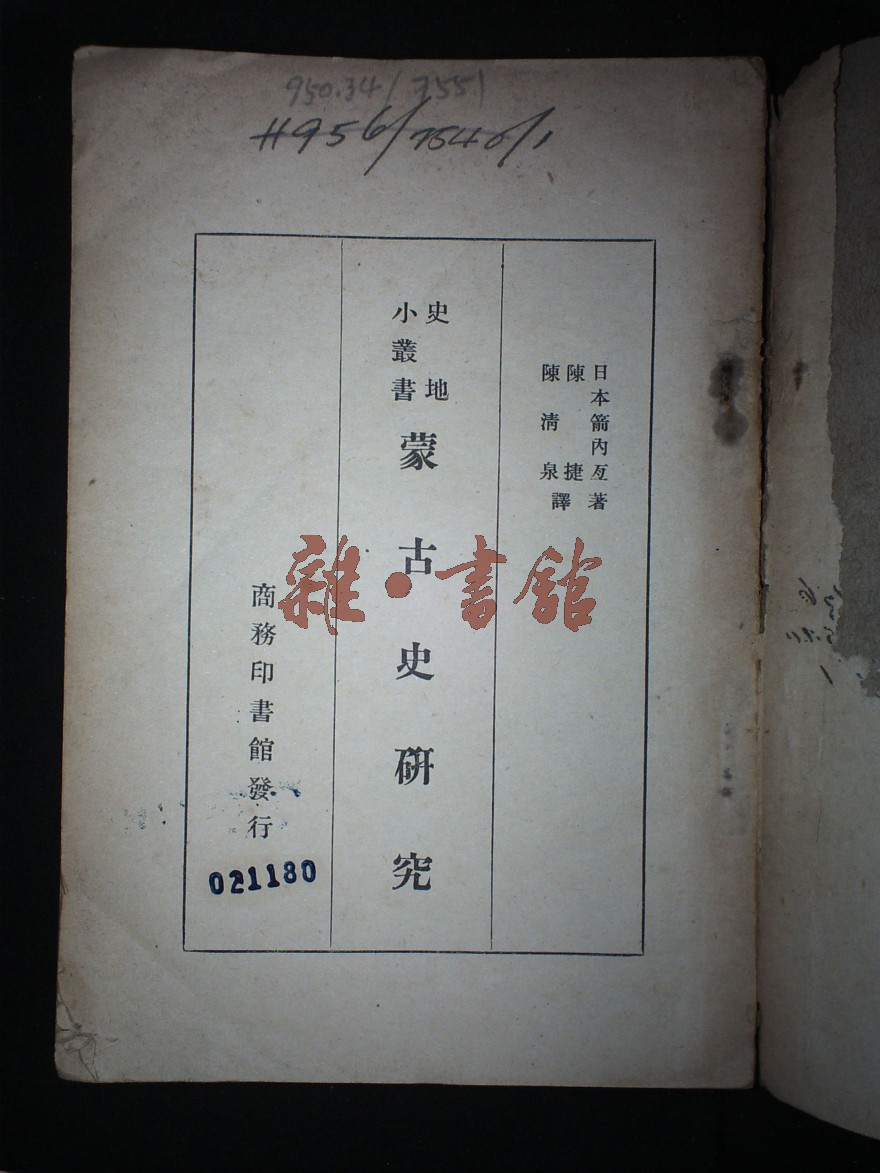 950.34/7551
H956/7540/1
日本箭內亙著
陳捷
陳清泉
譯
史地
小叢書
蒙古史研究
商務印書館發行
021180
雜·書館